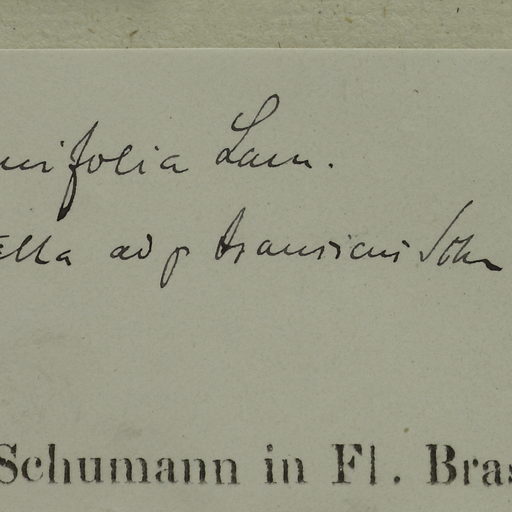 uifolia Lam.
ella ad β transiens Schm
Schumann in Fl. Bras